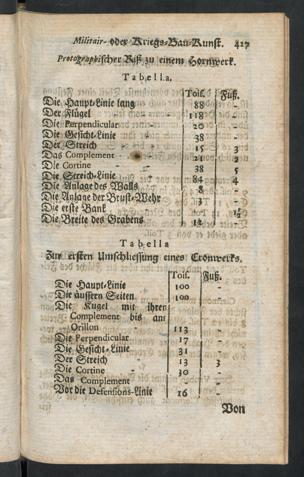 Militair- oder Kriegs-Bau-Kunst. 427
Protographischer Riß zu einem Hornwerk.
Tabella.
Tois. Fuß.
Die Haupt-Linie lang 88 -
Der Flügel 118 -
Die Perpendicular 20 -
Die Gesicht-Linie 38 -
Der Streich 15 3
Das Complement 21 2
Die Cortine 38 5
Die Streich-Linie 84 4
Die Anlage des Walls 8 -
Die Anlage der Brust-Wehr 3 -
Die erste Bank - 1½
Die Breite des Grabens 12
Tabella
Zur ersten Umschliessung eines Cronwerks.
Tois. Fuß.
Die Haupt-Linie 100
Die äussern Seiten 100
Die Kugel mit ihren
Complement bis am
Orillon 113
Die Perpendicular 17
Die Gesicht-Linie 31
Der Streich 13 3
Die Cortine 30 -
Das Complement
Vor die Defensions-Linie 16
Von